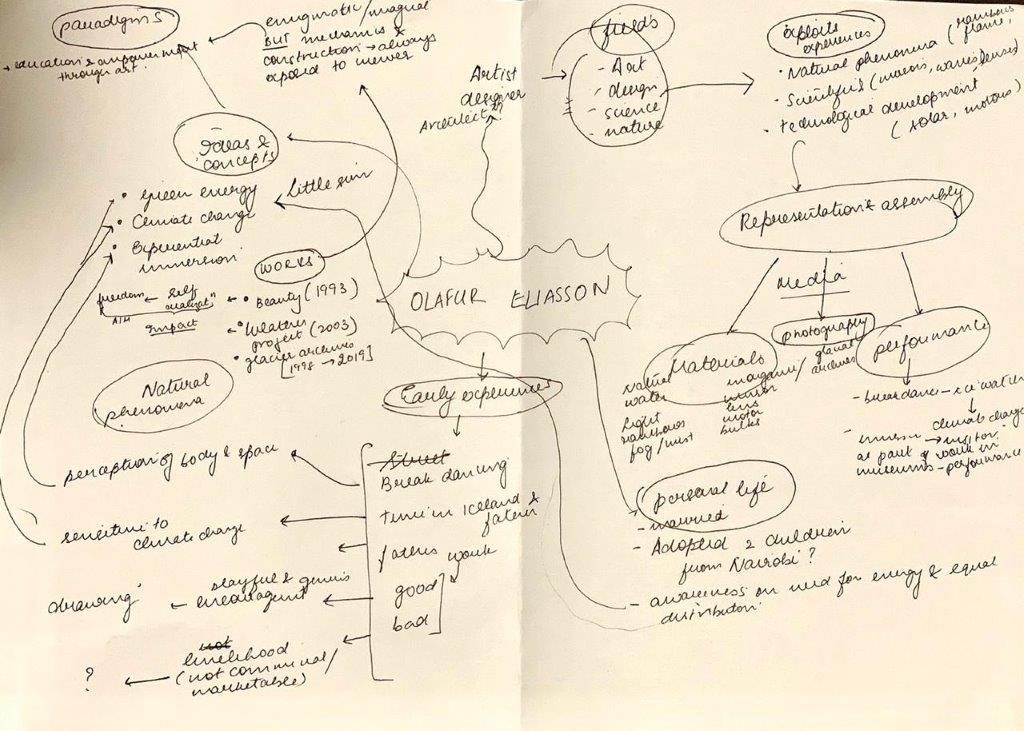 paradigms
→ education & empowerment
through art.
enigmatic/magical
BUT mechanis &
construction → always
exposed to viewer
Artist
designer
Architect ??
fields
- Art
- design
- science
- nature
exploits
experiences
• Natural phenomena (rainbows
• Scientific
• technological development
(solar, motors)
Ideas &
concepts
• green energy
• Climate change
• Experiential
immersion
Little sun
Representation & assembly
WORKS
freedom ← self
Aim
impact
• Beauty (1993)
project (2003)
• glacier archives
[1998 → 2019]
OLAFUR ELIASSON
Media
Materials
water
light
rainbows
fog/mist
inorganic/
mirror
lens
motor
bulbs
photography
archives
performance
- breakdance
climate change
as part of work in
museums - performance
Natural
phenomena
Early experiences
perception of body & space
Street
Break dancing
sensitive to
climate change
time in Iceland &
father
fathers work
good
bad
drawing
playful &
?
not
livelihood
(not commercial/
marketable)
personal life
- married
- Adopted 2 children
from Nairobi?
- awareness on need for energy & equal
distribution